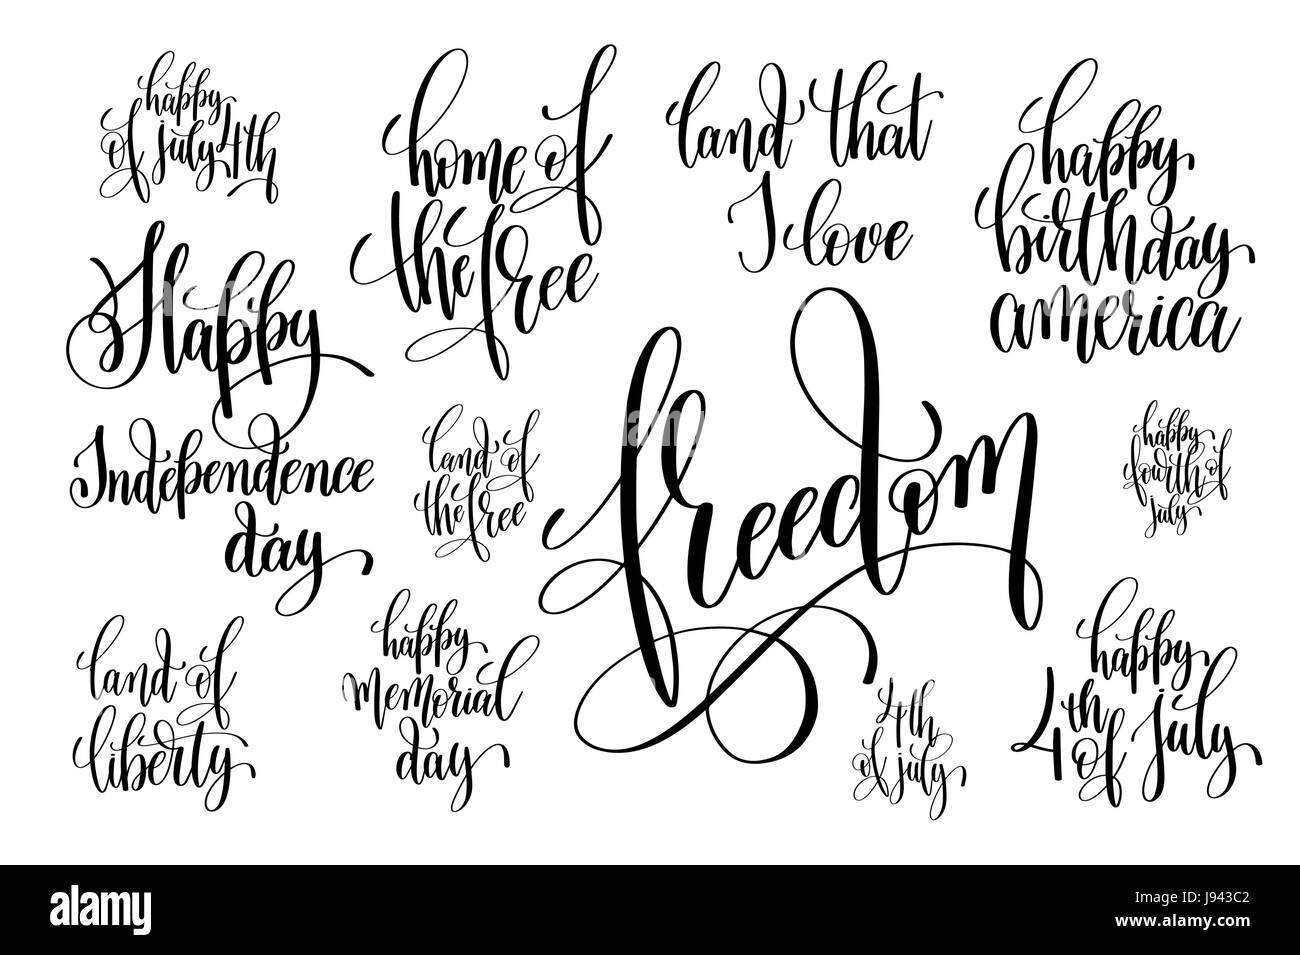 happy
of july 4th
home of
the free
land that
I love
happy
birthday
america
Happy
Independence
day
land of
the free
freedom
happy
fourth of
july
land of
liberty
happy
memorial
day
4th
of july
happy
4th of july
alamy
Image ID: J943C2
www.alamy.com